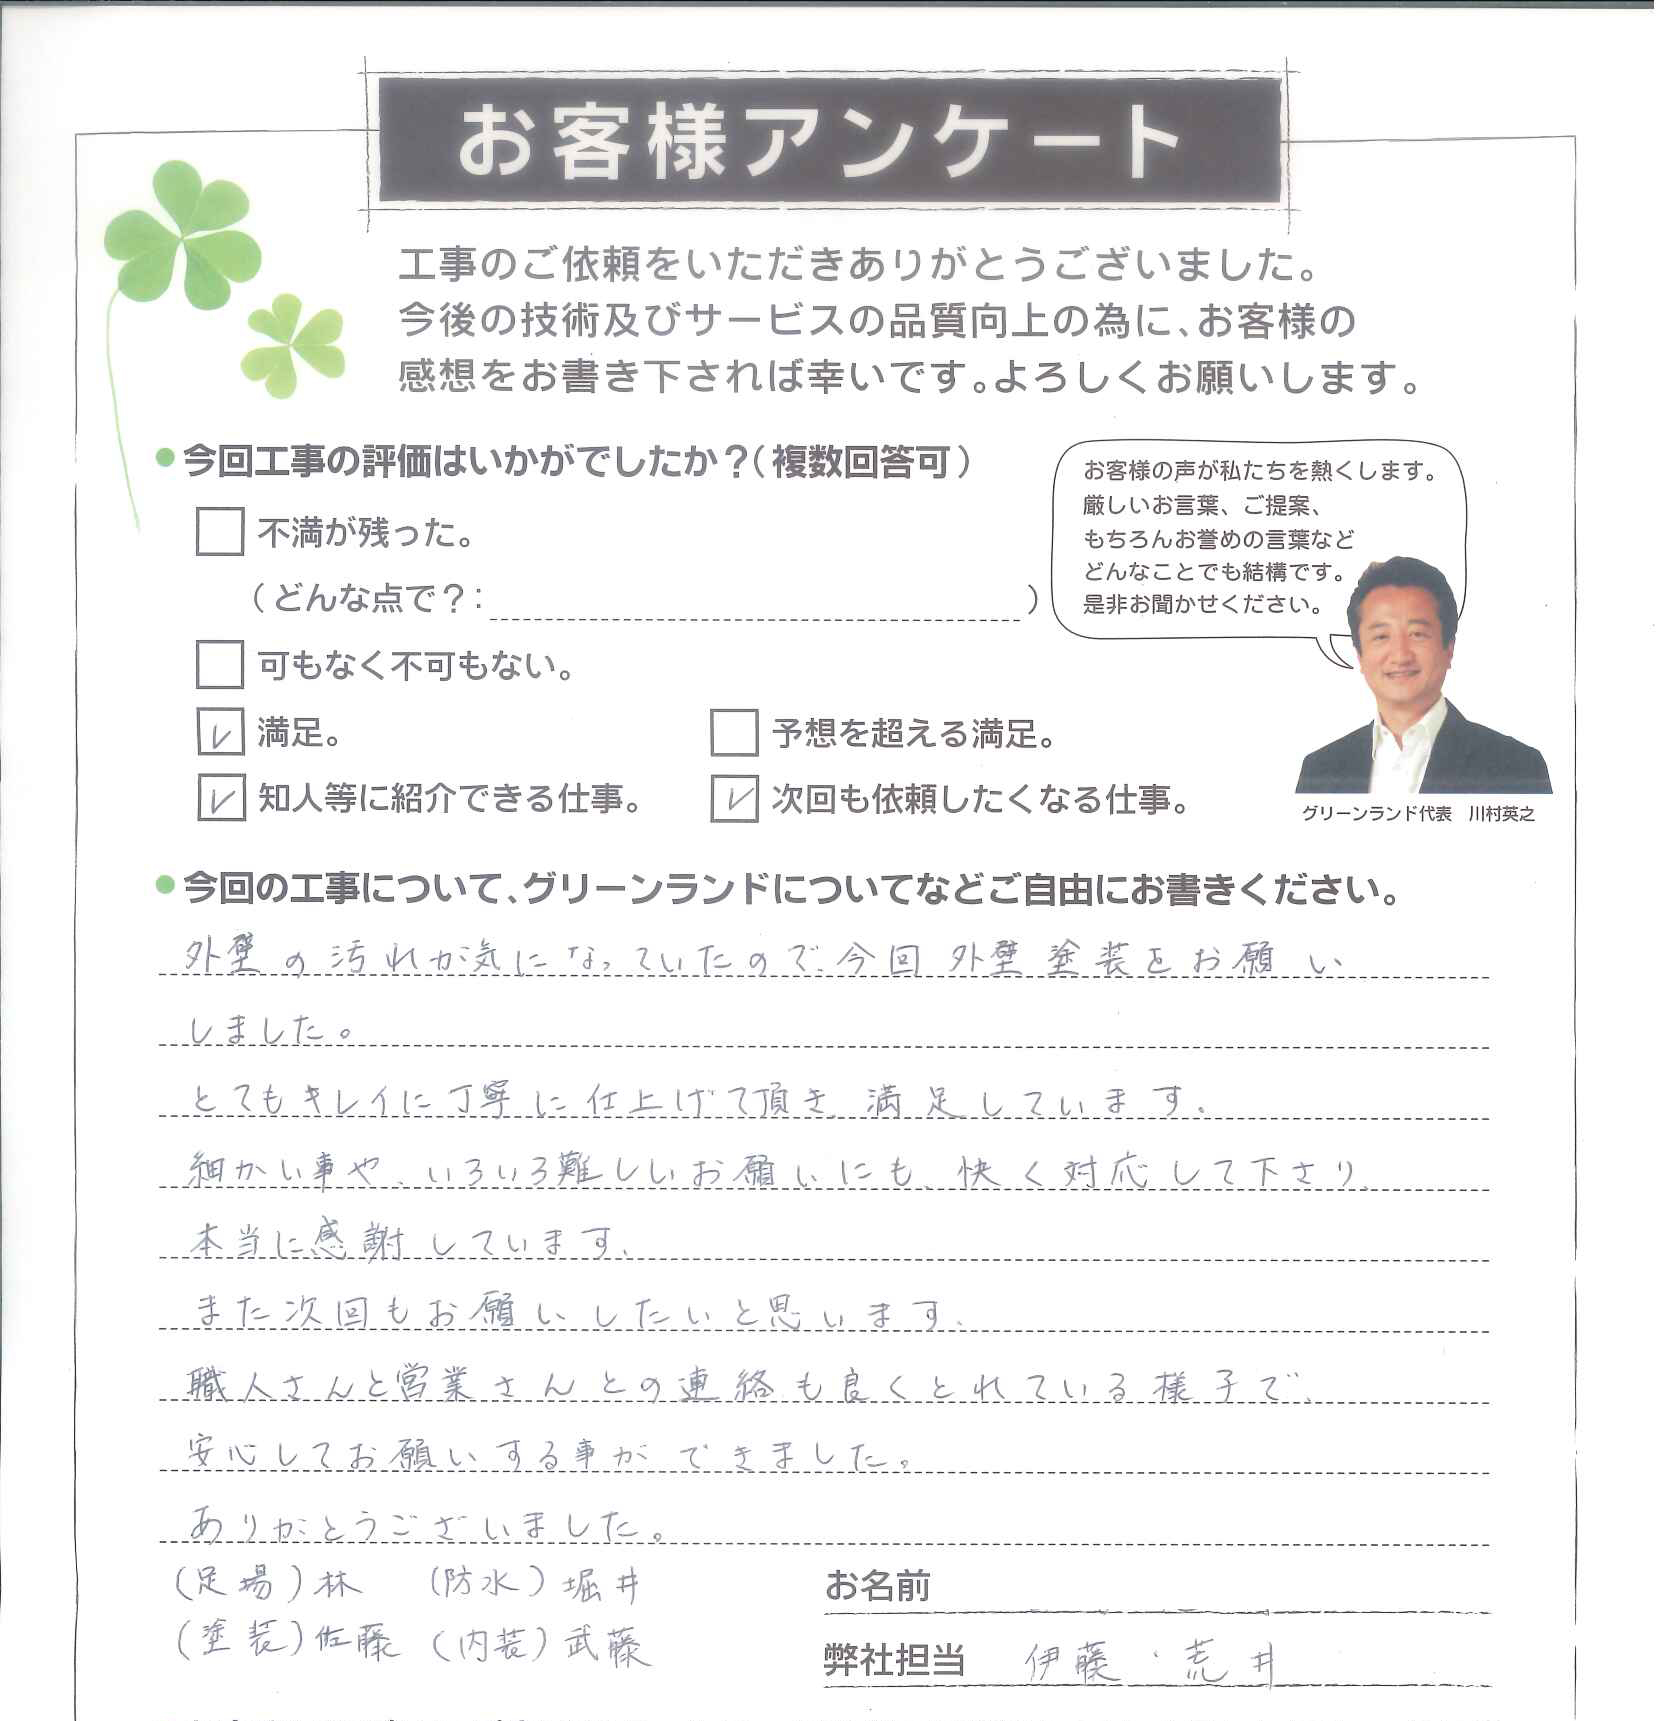 お客様アンケート
工事のご依頼をいただきありがとうございました。
今後の技術及びサービスの品質向上の為に、お客様の
感想をお書き下されば幸いです。よろしくお願いします。
●今回工事の評価はいかがでしたか？（複数回答可）
不満が残った。
（どんな点で？： ）
可もなく不可もない。
満足。
予想を超える満足。
知人等に紹介できる仕事。
次回も依頼したくなる仕事。
お客様の声が私たちを熱くします。
厳しいお言葉、ご提案、
もちろんお誉めの言葉など
どんなことでも結構です。
是非お聞かせください。
グリーンランド代表 川村英之
●今回の工事について、グリーンランドについてなどご自由にお書きください。
外壁の汚れが気になっていたので、今回外壁塗装をお願い
しました。
とてもキレイに丁寧に仕上げて頂き、満足しています。
細かい事や、いろいろ難しいお願いにも、快く対応して下さり、
本当に感謝しています。
また次回もお願いしたいと思います。
職人さんと営業さんとの連絡も良くとれている様子で、
安心してお願いする事ができました。
ありがとうございました。
（足場）林 （防水）堀井
（塗装）佐藤 （内装）武藤
お名前
弊社担当 伊藤・荒井